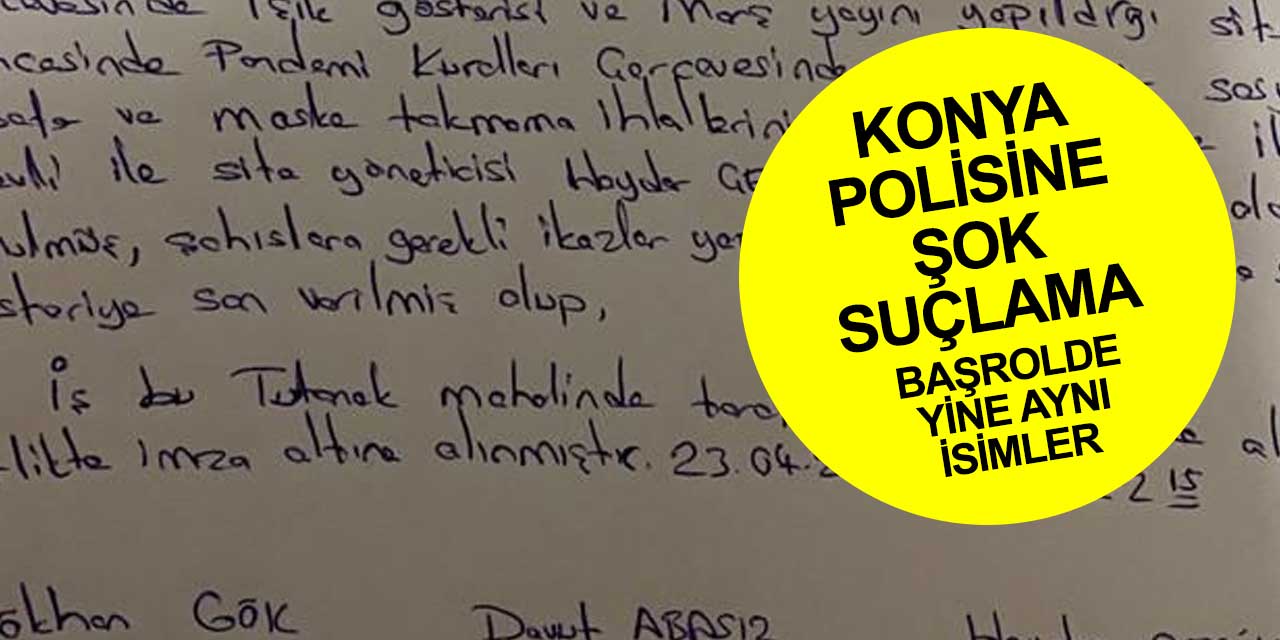 Işık gösterisi ve Marş yayını yapıldığı sit
Pandemi Kuralları Çerçevesinde
ve maska takmama ihlallerini
ile sita yöneticisi Haydar GE
şahıslara gerekli ikazlar
son verilmiş olup,
İş bu Tutanak mahalinde
imza altına alınmıştır. 23.04.2
2 15
GÖK Davut ABASIZ
KONYA
POLİSİNE
ŞOK
SUÇLAMA
BAŞROLDE
YİNE AYNI
İSİMLER